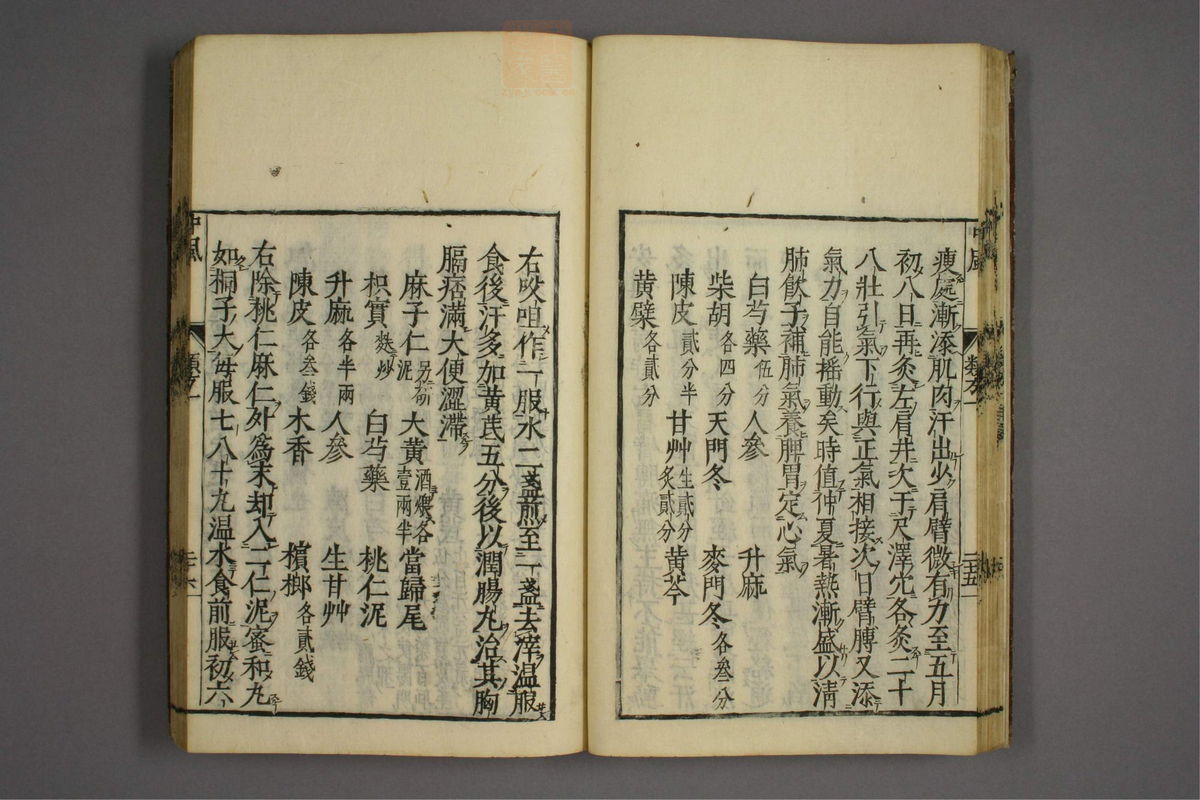 瘦處漸添肌肉汗出少肩臂微有力至五月
初八日再灸左肩井次于尺澤穴各灸二十
八壯引氣下行與正氣相接次日臂膊又添
氣力自能搖動矣時值仲夏暑熱漸盛以清
肺飲子補肺氣養脾胃定心氣
白芍藥伍分 人參 升麻
柴胡各四分 天門冬 麥門冬各叁分
陳皮貳分半 甘艸生貳分炙貳分 黄芩
黄檗各貳分
右㕮咀作一服水二盞煎至一盞去滓温服
食後汗多加黄芪五分後以潤腸丸治其胸
膈痞滿大便澀滯
麻子仁另研泥 大黄酒煨各壹兩半 當歸尾
枳實麩炒 白芍藥 桃仁泥
升麻各半兩 人參 生甘艸
陳皮各叁錢 木香 檳榔各貳錢
右除桃仁麻仁外為末却入二仁泥蜜和丸
如桐子大每服七八十丸温水食前服初六
中風
二十六